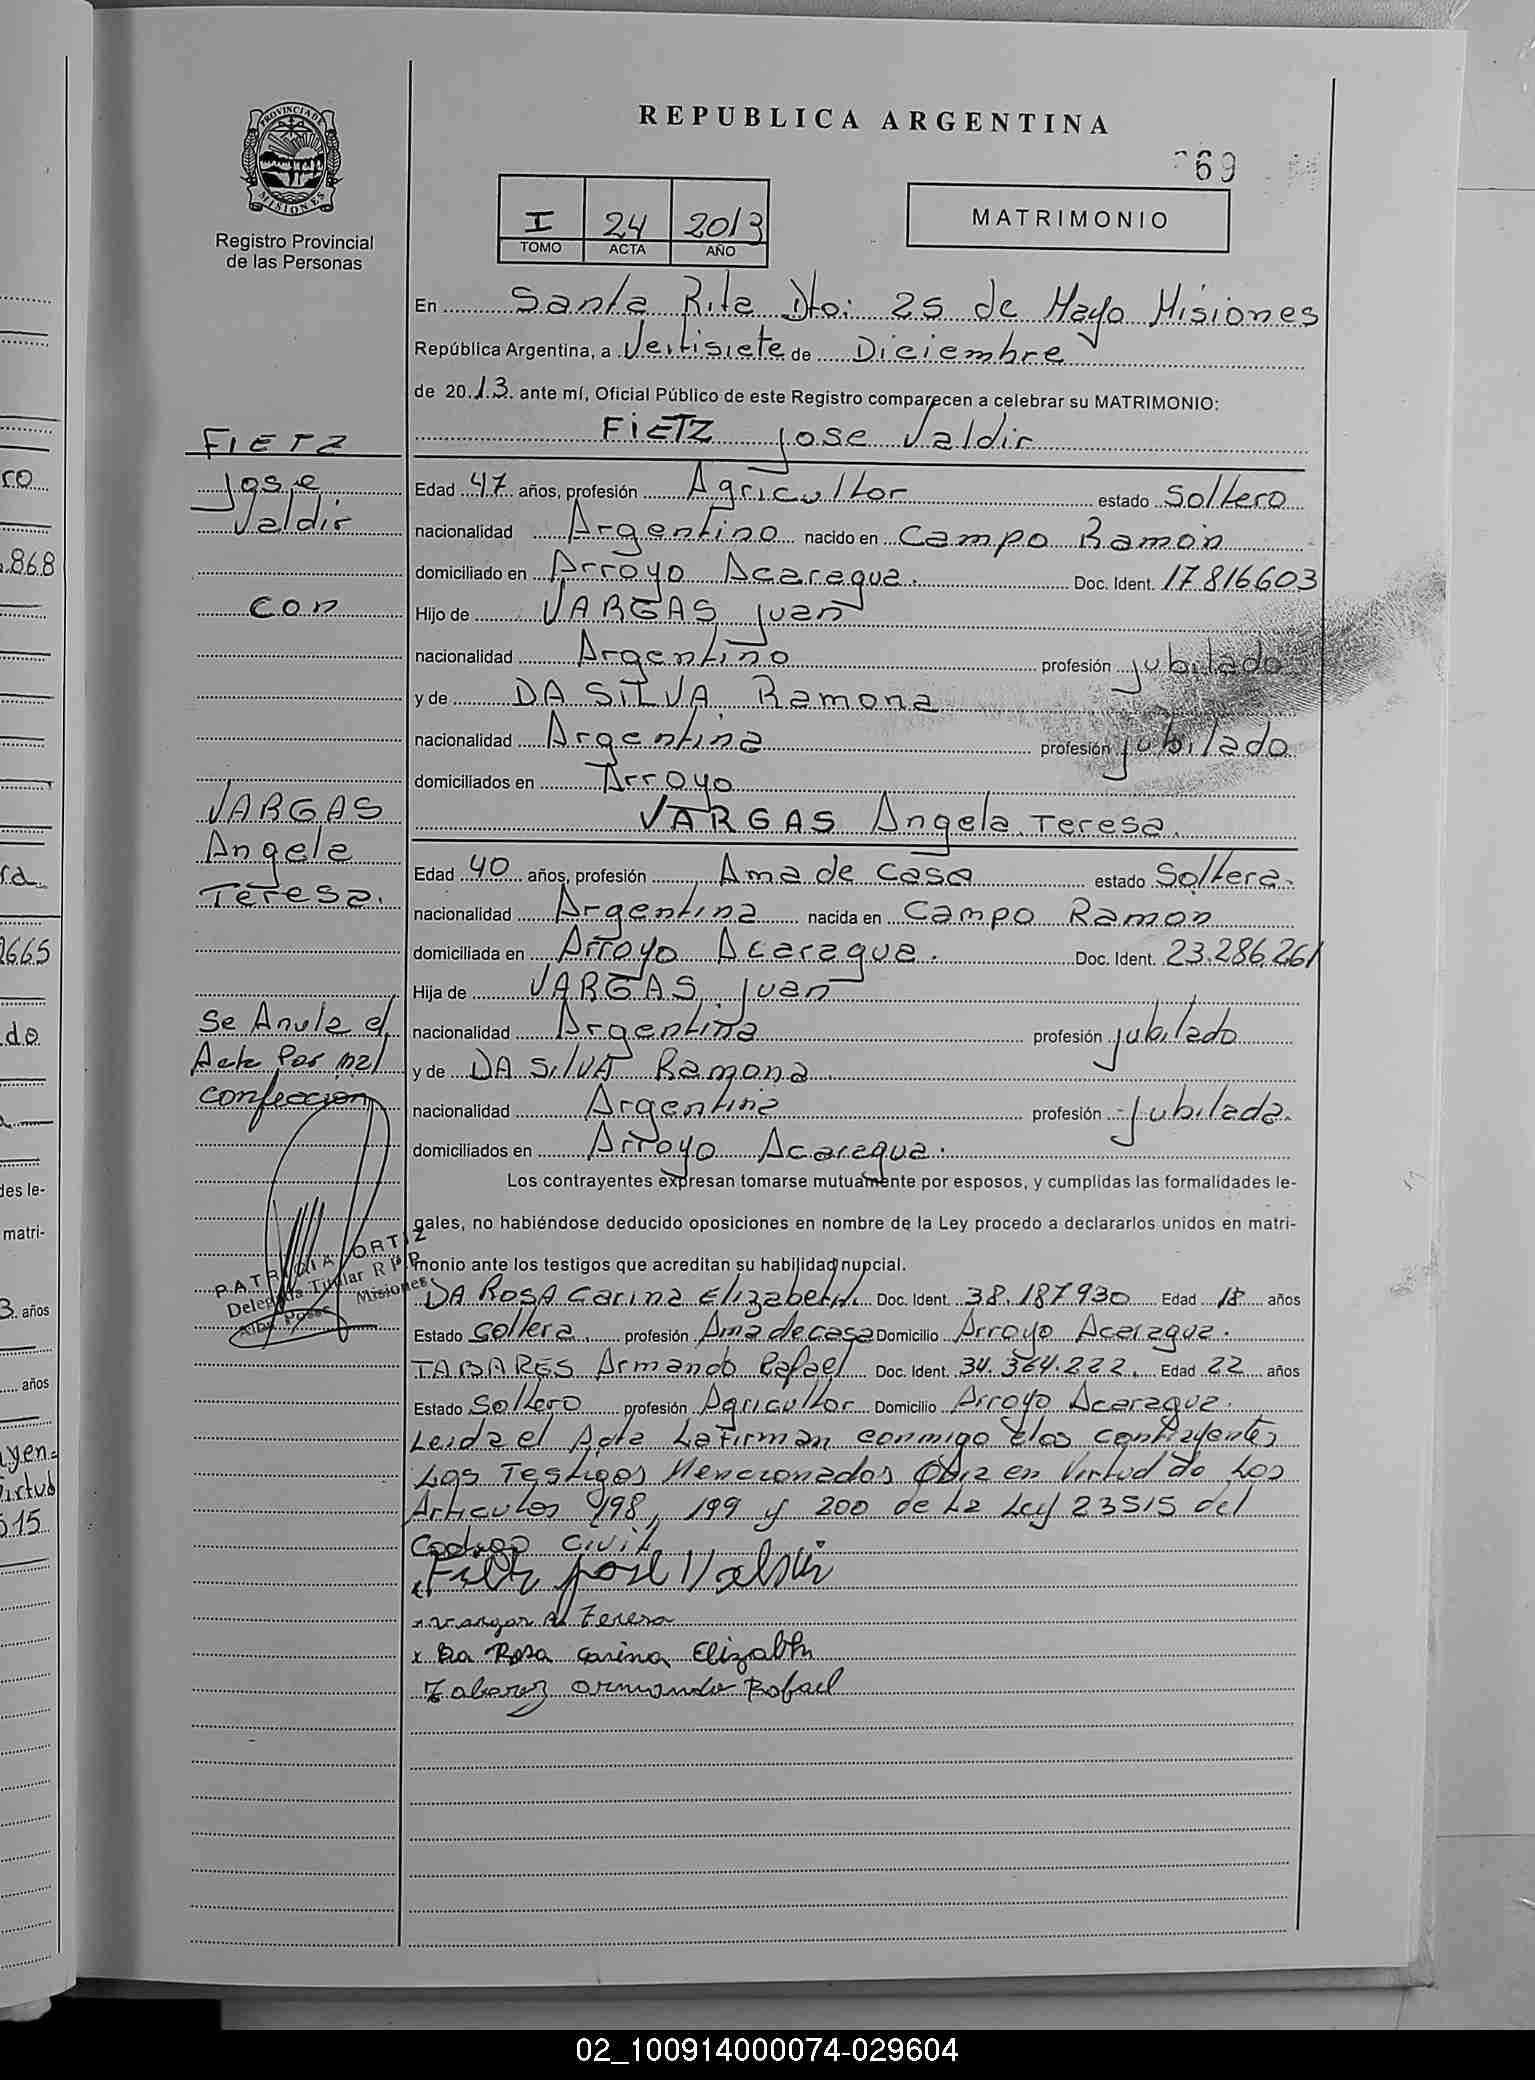 REPUBLICA ARGENTINA
69
PROVINCIA DE
MISIONES
Registro Provincial
de las Personas
I 24 2013
TOMO ACTA AÑO
MATRIMONIO
En Santa Rita Dto: 25 de Mayo Misiones
República Argentina, a Veitisiete de Diciembre
de 2013 ante mí, Oficial Público de este Registro comparecen a celebrar su MATRIMONIO:
FIETZ Jose Valdir
FIETZ
Jose
Valdir
con
VARGAS
Angela
Teresa.
Edad 47 años, profesión Agricultor estado Soltero
nacionalidad Argentino nacido en Campo Ramon
domiciliado en Arroyo Acaragua. Doc. Ident. 17816603
Hijo de VARGAS Juan
nacionalidad Argentino profesión jubilado
y de DA SILVA Ramona
nacionalidad Argentina profesión jubilado
domiciliados en Arroyo
VARGAS Angela Teresa.
Edad 40 años, profesión Ama de casa estado Soltera.
nacionalidad Argentina nacida en Campo Ramon
domiciliada en Arroyo Acaragua. Doc. Ident. 23.286.261
Hija de VARGAS Juan
nacionalidad Argentina profesión jubilado
y de DA SILVA Ramona.
nacionalidad Argentina profesión jubilada.
domiciliados en Arroyo Acaragua.
Se Anula el
Acta Por mal
confeccion
PATRICIA ORTIZ
Delegada Titular R P P
Alba Posse Misiones
Los contrayentes expresan tomarse mutuamente por esposos, y cumplidas las formalidades le-
gales, no habiéndose deducido oposiciones en nombre de la Ley procedo a declararlos unidos en matri-
monio ante los testigos que acreditan su habilidad nupcial.
DA ROSA Carina Elizabeth. Doc. Ident. 38.187930 Edad 18 años
Estado Soltera profesión Ama de casa Domicilio Arroyo Acaragua.
TABARES Armando Rafael Doc. Ident. 34.364.222. Edad 22 años
Estado Soltero profesión Agricultor Domicilio Arroyo Acaragua.
Leida el Acta La Firman conmigo Contrayentes
Los Testigos Mencionados en Virtud de Los
Articulos 198, 199 y 200 de La Ley 23515 del
Codigo Civil
Fietz Jose Valdir
x Vargas A Teresa
x Da Rosa Carina Elizabth
Tabarez Armando Rafael
ro
.868
ra.
2665
do
des le-
matri-
3. años
años
ayen-
Virtud
515
02_100914000074-029604